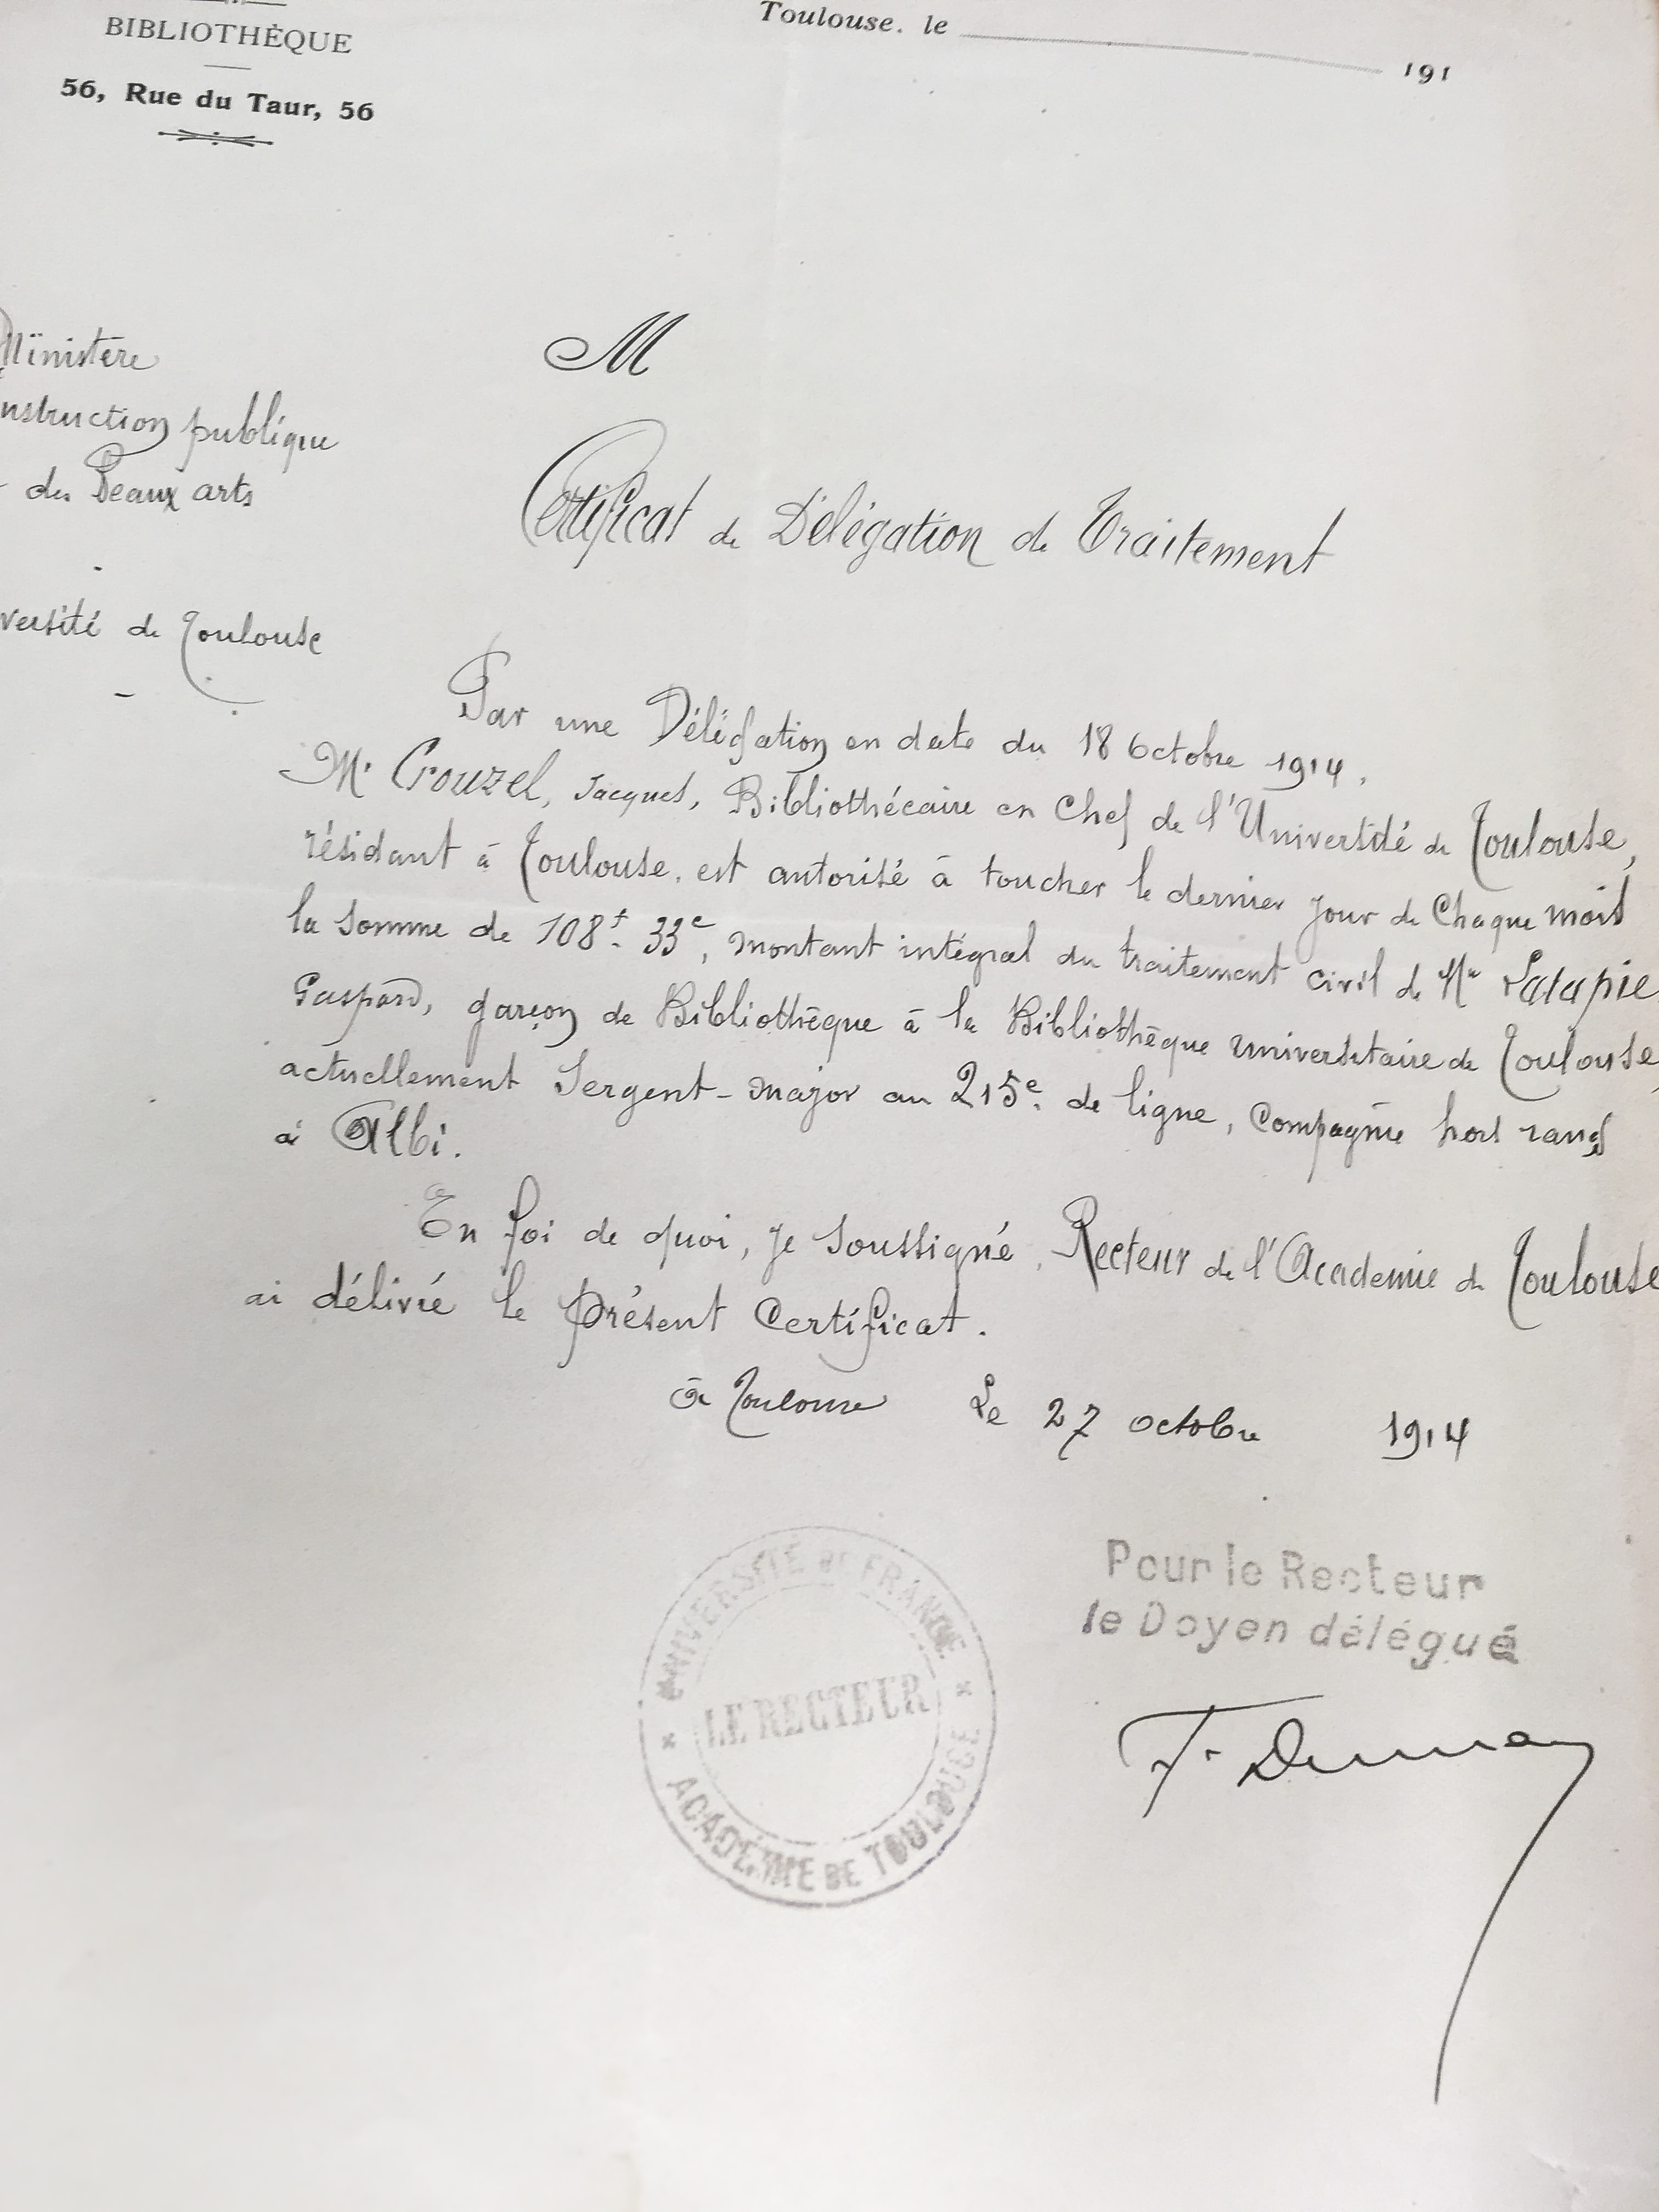 BIBLIOTHÈQUE
56, Rue du Taur, 56
Toulouse, le
191
Ministère
nstruction publique
des Beaux arts
versité de Toulouse
M
Certificat de Délégation de Traitement
Par une Délégation en date du 18 Octobre 1914,
Mr Crouzel, Jacques, Bibliothécaire en Chef de l'Université de Toulouse,
résidant à Toulouse, est autorisé à toucher le dernier jour de Chaque mois
la Somme de 108f. 33c, montant intégral du traitement civil de Mr Latapie
Gaspard, garçon de Bibliothèque à la Bibliothèque universitaire de Toulouse,
actuellement Sergent-major au 215e. de ligne, Compagnie hors rangs
à Albi.
En foi de quoi, je Soussigné, Recteur de l'Academie de Toulouse
ai délivré le présent Certificat.
à Toulouse Le 27 octobre 1914
Pour le Recteur
le Doyen délégué
UNIVERSITÉ DE FRANCE
LE RECTEUR
ACADÉMIE DE TOULOUSE